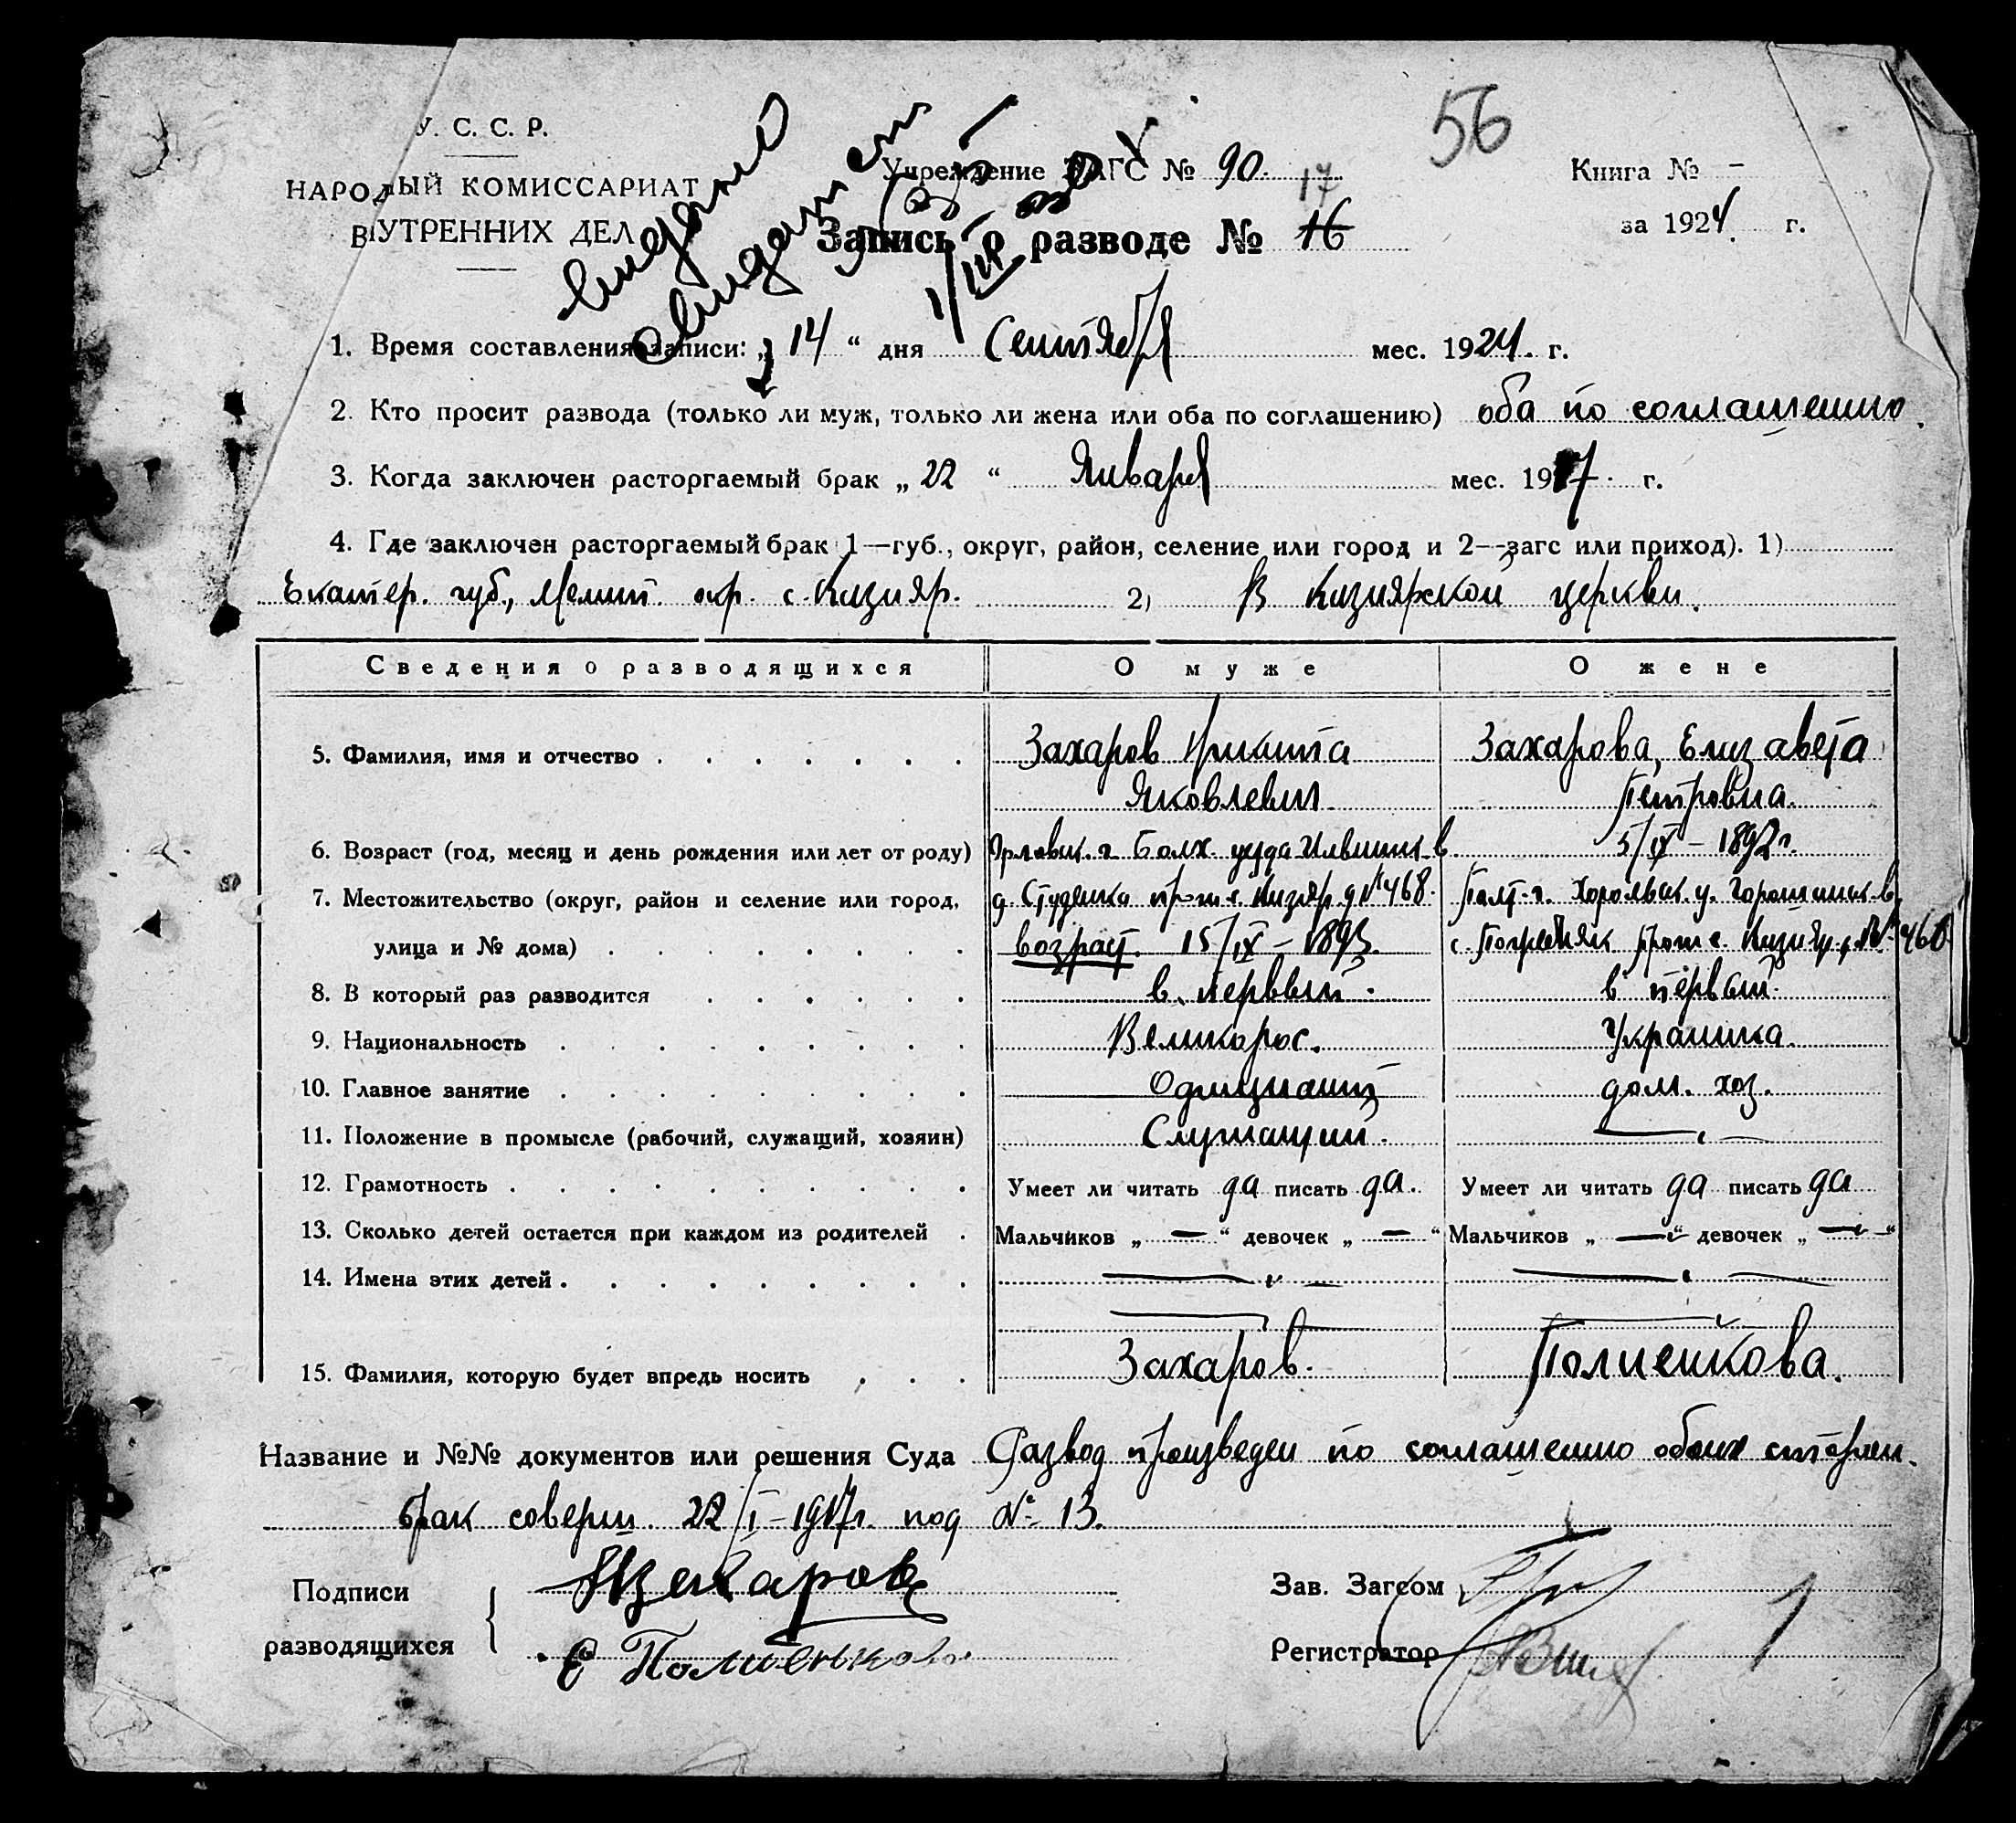 56
У. С. С. Р.
НАРОДНЫЙ КОМИССАРИАТ
ВНУТРЕННИХ ДЕЛ
Учреждение ЗАГС № 90.
Книга № -
за 1924 г.
17
Запись о разводе № 16
1. Время составления записи: „ 14 “ дня Сентября мес. 1924. г.
2. Кто просит развода (только ли муж, только ли жена или оба по соглашению) оба по соглашению.
3. Когда заключен расторгаемый брак „ 22 “ Января мес. 1917. г.
4. Где заключен расторгаемый брак 1—губ., округ, район, селение или город и 2—загс или приход). 1)
Екатер. губ., Мелит. окр. с. Кизияр. 2) В Кизиярской церкви.
Сведения о разводящихся О муже О жене
5. Фамилия, имя и отчество Захаров Никита Захарова, Елизавета
Яковлевич Петровна.
6. Возраст (год, месяц и день рождения или лет от роду) Орловск. г. Болх. уезда 5/IX – 1892 г.
7. Местожительство (округ, район и селение или город, д. Студенка прож. с. Кизияр д № 468. Полт. г. Хорольск. у.
улица и № дома) возраст. 15/IX – 1893. с. прож. с. Кизияр, № 468
8. В который раз разводится в первый. в первый.
9. Национальность Великорос. Украинка.
10. Главное занятие дом. хоз.
11. Положение в промысле (рабочий, служащий, хозяин) Служащий. —
12. Грамотность Умеет ли читать да писать да. Умеет ли читать да писать да
13. Сколько детей остается при каждом из родителей Мальчиков „ — “ девочек „ — “ Мальчиков „ — “ девочек „ — “
14. Имена этих детей — —
15. Фамилия, которую будет впредь носить Захаров. Полиенкова.
Название и №№ документов или решения Суда Развод произведен по соглашению обоих сторон.
брак соверш. 22/I – 1917 г. под № 13.
Подписи
разводящихся
НЗахаров
Е Полиенкова
Зав. Загсом
Регистратор